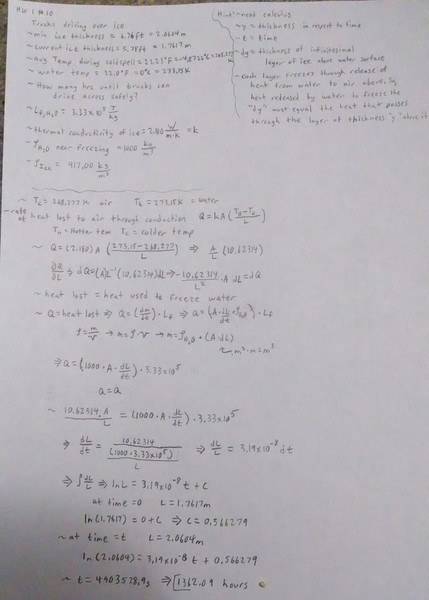 HW 1 #10
Trucks driving over ice
~min ice thickness = 6.76ft = 2.0604m
~current ice thickness = 5.78ft = 1.7617m
~avg Temp during cold spell = 23.23°F =
~water temp = 32.0°F = 0°C = 273.15K
~How many hrs until trucks can
drive across safely?
~Lf,H₂O = 3.33x10⁵ J/kg
~thermal conductivity of ice = 2.180 W/m·K = k
~ρH₂O near freezing = 1000 kg/m³
~ρIce = 917.00 kg/m³
Hint: ~need calculus
~y = thickness in respect to time
~t = time
~dy = thickness of infinitesimal
layer of ice above water surface
~each layer freezes through release of
heat from water to air above. So,
heat released by water to freeze the
"dy" must equal the heat that passes
through the layer of thickness "y" above it
~ Tc = 268.277K air Th = 273.15K = water
~rate of heat lost to air through conduction Q = kA(TH-Tc/L)
TH = Hotter tem Tc = colder temp
~ Q = (2.180)A(273.15-268.277/L) ⇒ A/L (10.62314)
∂Q/∂L ⇒ dQ = (A)L⁻¹(10.62314)dL ⇒ -10.62314/L² · A dL = dQ
~ heat lost = heat used to freeze water
~ Q = heat lost ⇒ Q = (dm/dt)·Lf ⇒ Q = (A·dL/dt·ρH₂O)·Lf
ρ = m/V → m = ρ·V → m = ρH₂O · (A·dL)
m²·m = m³
⇒ Q = (1000·A·dL/dt)·3.33x10⁵
Q = Q
~ 10.62314·A/L = (1000·A·dL/dt)·3.33x10⁵
⇒ dL/dt = 10.62314/(1000·3.33x10⁵)/L ⇒ dL/L = 3.19x10⁻⁸ dt
⇒ ∫dL/L ⇒ ln L = 3.19x10⁻⁸ t + C
at time = 0 L = 1.7617m
ln(1.7617) = 0 + C ⇒ C = 0.566279
~ at time = t L = 2.0604m
ln(2.0604) = 3.19x10⁻⁸ t + 0.566279
~ t = 4903528.9s ⇒ 1362.09 hours